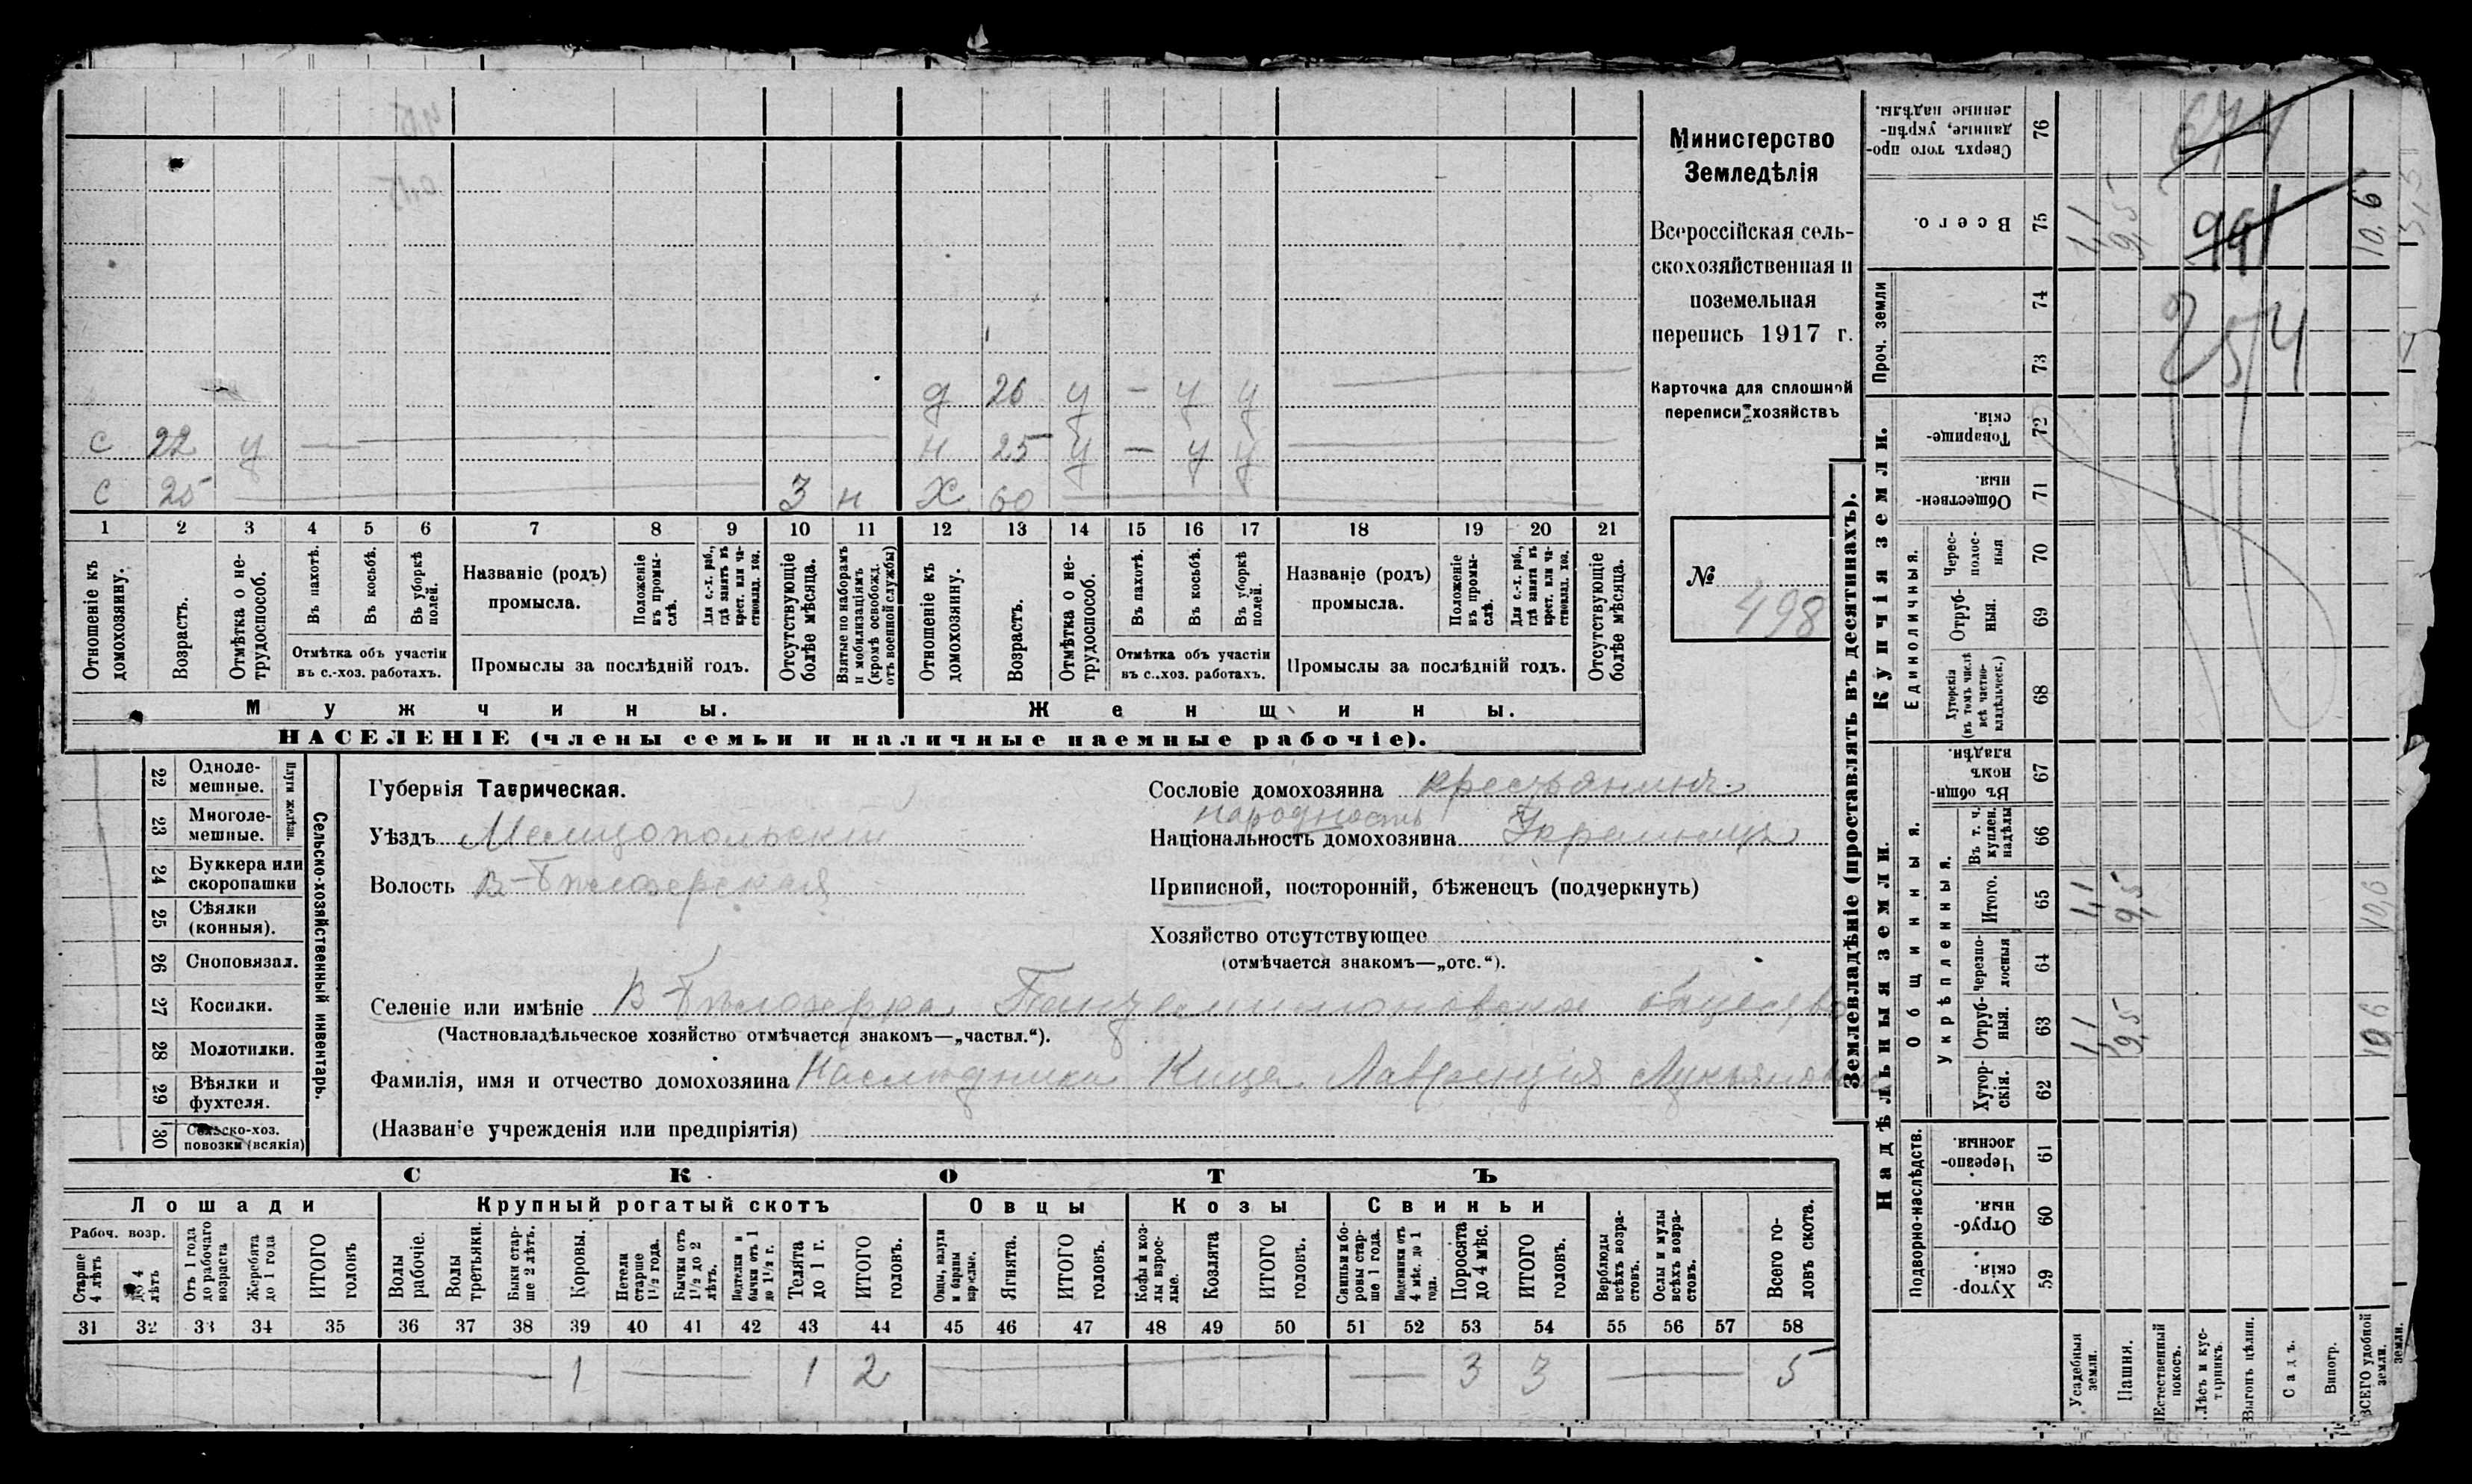 Министерство
Земледѣлія
Всероссійская сель-
скохозяйственная и
поземельная
перепись 1917 г.
Карточка для сплошной
переписи хозяйствъ
№ 498
д 26 у — у у
с 22 у — н 25 у — у у
с 25 3 н х 60
1 2 3 4 5 6 7 8 9 10 11 12 13 14 15 16 17 18 19 20 21
Отношеніе къ домохозяину.
Возрастъ.
Отмѣтка о не-трудоспособ.
Въ пахотѣ.
Въ косьбѣ.
Въ уборкѣ полей.
Отмѣтка объ участіи
въ с.-хоз. работахъ.
Названіе (родъ)
промысла.
Положеніе въ промы-слѣ.
Для с.-х. раб., гдѣ занятъ въ крест. или ча-стновлад. хоз.
Промыслы за послѣдній годъ.
Отсутствующіе болѣе мѣсяца.
Взятые по наборамъ и мобилизаціямъ (кромѣ освобожд. отъ военной службы)
Отношеніе къ домохозяину.
Возрастъ.
Отмѣтка о не-трудоспособ.
Въ пахотѣ.
Въ косьбѣ.
Въ уборкѣ полей.
Отмѣтка объ участіи
въ с.-хоз. работахъ.
Названіе (родъ)
промысла.
Положеніе въ промы-слѣ.
Для с.-х. раб., гдѣ занята въ крест. или ча-стновлад. хоз.
Промыслы за послѣдній годъ.
Отсутствующіе болѣе мѣсяца.
Мужчины. Женщины.
НАСЕЛЕНІЕ (члены семьи и наличные наемные рабочіе).
Сельско-хозяйственный инвентарь.
Плуги желѣзн.
22 Одноле-мешные.
23 Многоле-мешные.
24 Буккера или скоропашки
25 Сѣялки (конныя).
26 Сноповязал.
27 Косилки.
28 Молотилки.
29 Вѣялки и фухтеля.
30 Сельско-хоз. повозки (всякія)
Губернія Таврическая.
Уѣздъ Мелитопольскій
Волость В-Бѣлозерская
Сословіе домохозяина крестьянинъ
народность
Національность домохозяина Украинецъ
Приписной, посторонній, бѣженецъ (подчеркнуть)
Хозяйство отсутствующее
(отмѣчается знакомъ—„отс.“).
Селеніе или имѣніе В-Бѣлозерка Пантелимоновское общество
(Частновладѣльческое хозяйство отмѣчается знакомъ—„частвл.“).
Фамилія, имя и отчество домохозяина Наслѣдники Кица Лаврентія Лукьянов
(Названіе учрежденія или предпріятія)
СКОТЪ
Лошади Крупный рогатый скотъ Овцы Козы Свиньи
Рабоч. возр.
Старше 4 лѣтъ
до 4 лѣтъ
Отъ 1 года до рабочаго возраста
Жеребята до 1 года
ИТОГО головъ
Волы рабочіе.
Волы третьяки.
Быки стар-ше 2 лѣтъ.
Коровы.
Нетели старше 1½ года.
Бычки отъ 1½ до 2 лѣтъ.
Подтелки и бычки отъ 1 до 1½ г.
Телята до 1 г.
ИТОГО головъ.
Овцы, валухи и бараны взрослые.
Ягнята.
ИТОГО головъ.
Козы и коз-лы взрос-лые.
Козлята
ИТОГО головъ.
Свиньи и бо-ровы стар-ше 1 года.
Подсвинки отъ 4 мѣс. до 1 года.
Поросята до 4 мѣс.
ИТОГО головъ.
Верблюды всѣхъ возра-стовъ.
Ослы и мулы всѣхъ возра-стовъ.
Всего го-ловъ скота.
31 32 33 34 35 36 37 38 39 40 41 42 43 44 45 46 47 48 49 50 51 52 53 54 55 56 57 58
1 1 2 3 3 5
Землевладѣніе (проставлять въ десятинахъ).
Надѣльныя земли. Купчія земли. Проч. земли
Подворно-наслѣдств. Общинныя. Укрѣпленныя. Единоличныя.
59 Хутор-скія.
60 Отруб-ныя.
61 Черезпо-лосныя.
62 Хутор-скія.
63 Отруб-ныя.
64 Черезпо-лосныя
65 Итого.
66 Въ т. ч. куплен. надѣлы
67 Въ общин-номъ владѣн.
68 Хуторскія (въ томъ числѣ всѣ частно-владѣльческ.)
69 Отруб-ныя.
70 Черес-полос-ныя
71 Обществен-ныя.
72 Товарище-скія.
73
74
75 Всего.
76 Сверхъ того про-данные, укрѣп-ленные надѣлы.
Усадебныя земли. 1,1 1,1 1,1
Пашня. 9,5 9,5 9,5
Естественный покосъ.
Лѣсъ и кус-тарникъ.
Выгонъ цѣлин.
Садъ.
Виногр.
ВСЕГО удобной земли. 10,6 10,6 10,6
254